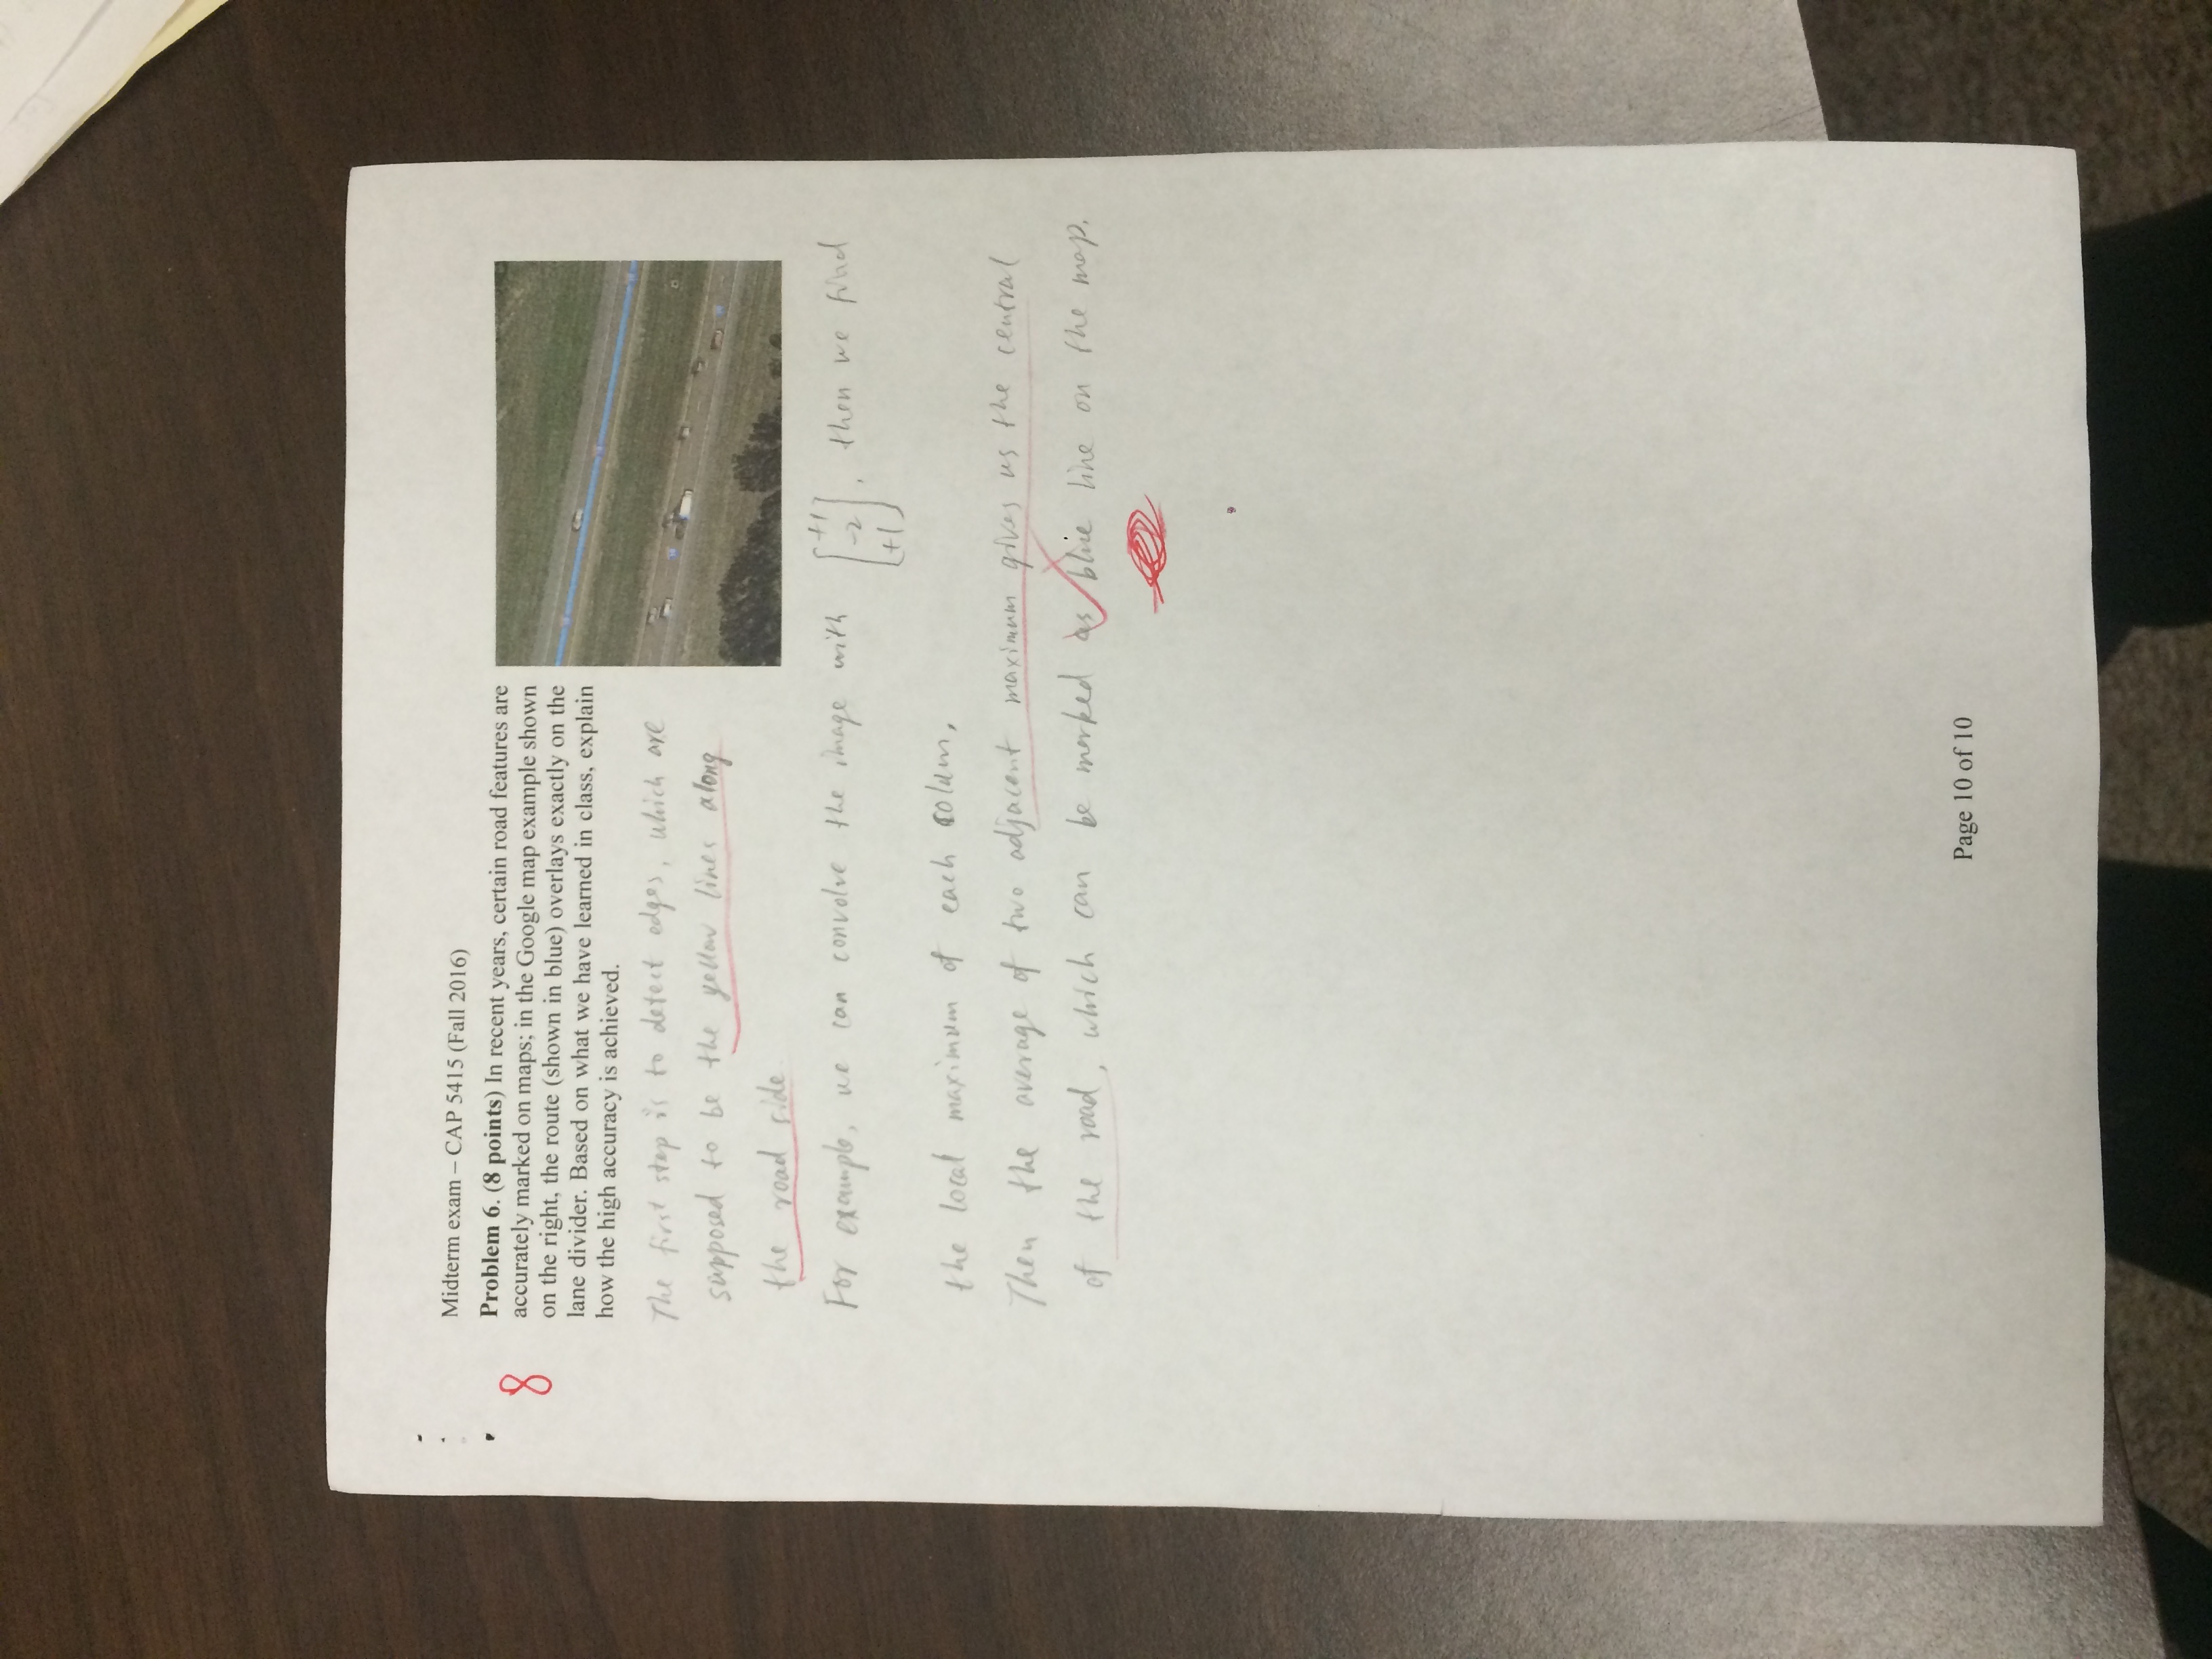 Midterm exam – CAP 5415 (Fall 2016)
8
Problem 6. (8 points) In recent years, certain road features are
accurately marked on maps; in the Google map example shown
on the right, the route (shown in blue) overlays exactly on the
lane divider. Based on what we have learned in class, explain
how the high accuracy is achieved.
The first step is to detect edges, which are
supposed to be the yellow lines along
the road side.
For example, we can convolve the image with [+1 -2 +1], then we find
the local maximum of each colum,
Then the average of two adjacent maximum gives us the central
of the road, which can be marked as blue line on the map.
Page 10 of 10